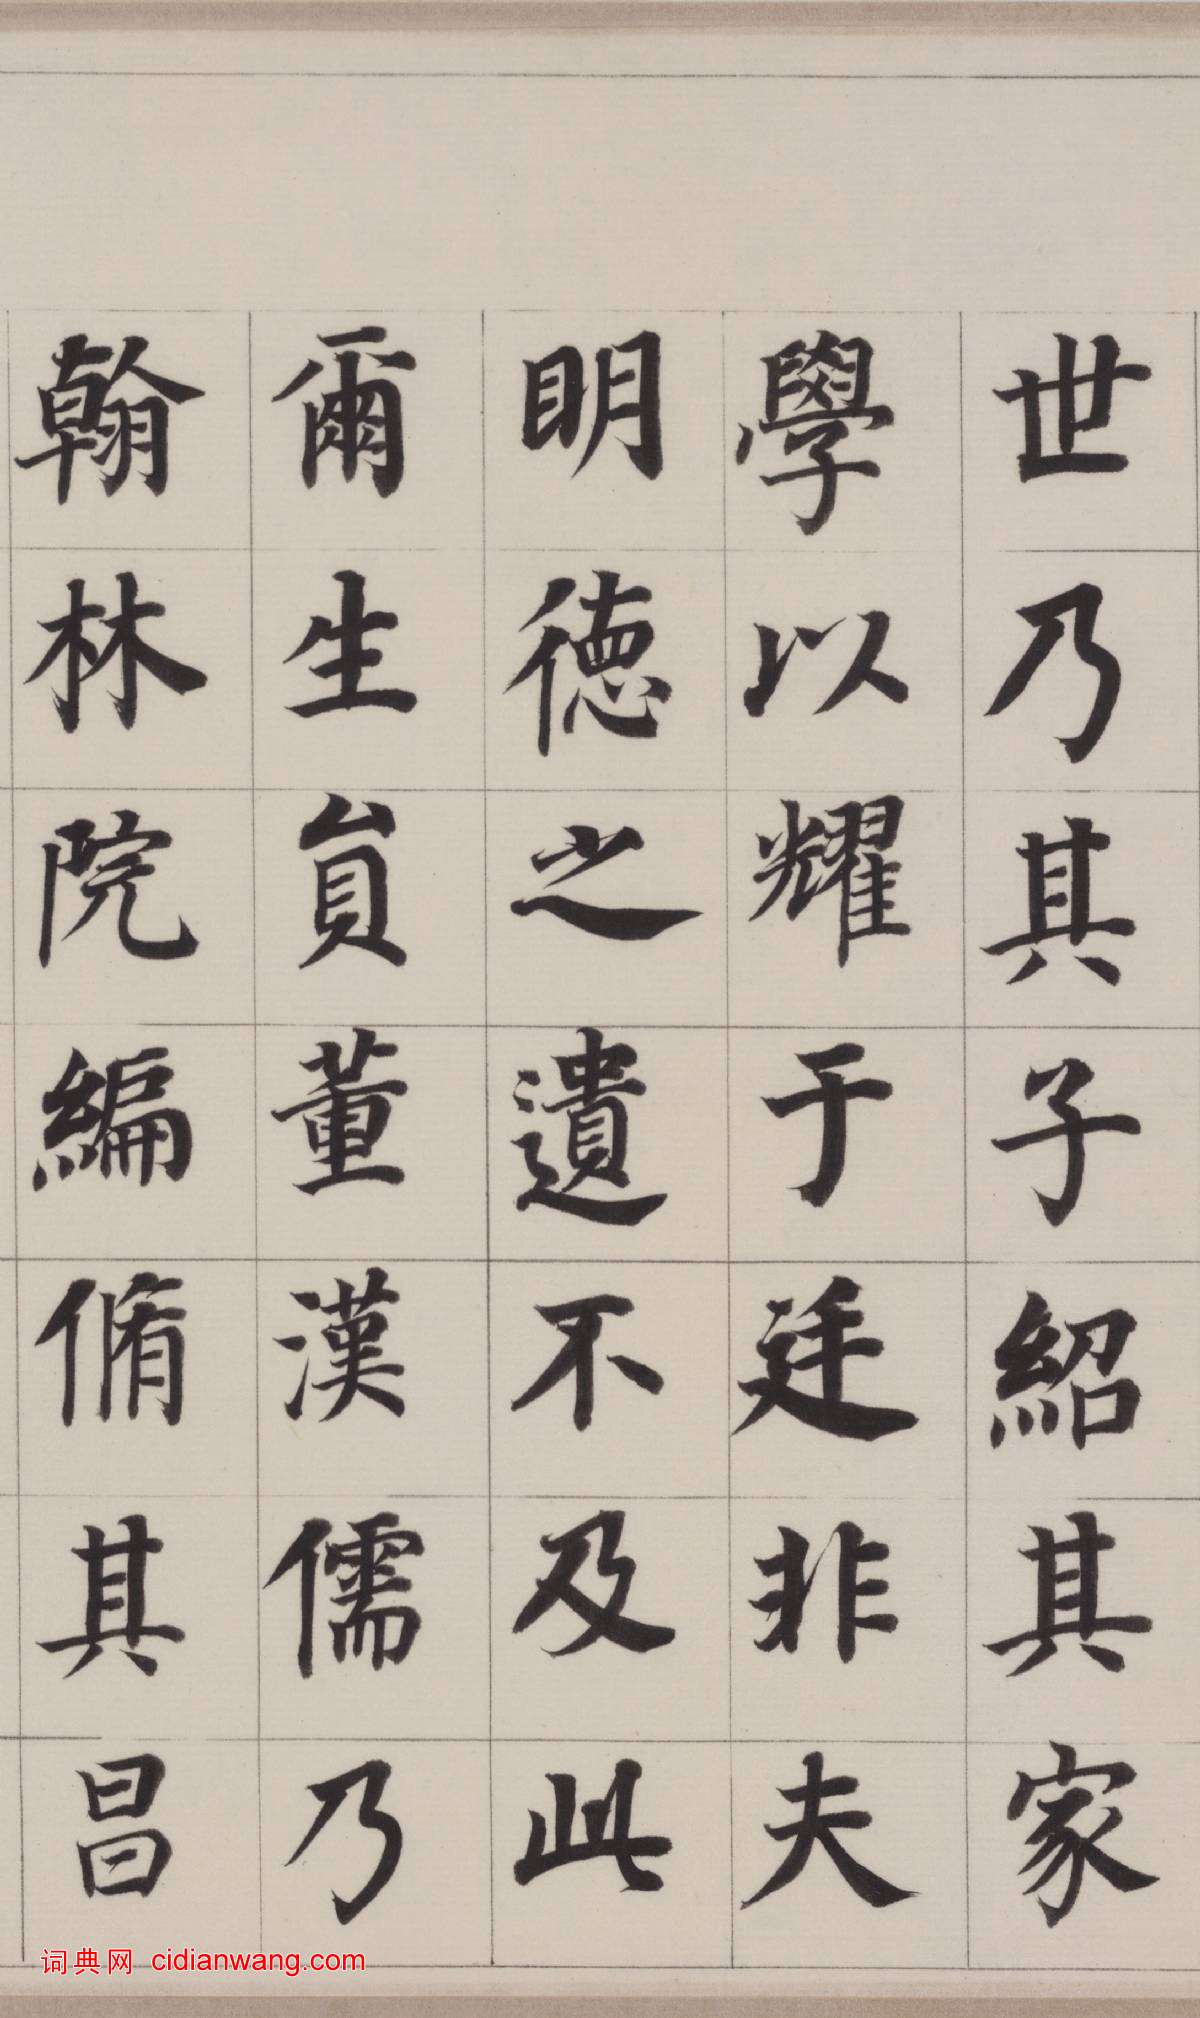 世乃其子紹其家
學以耀于廷非夫
明德之遺不及此
爾生員董漢儒乃
翰林院編脩其昌
词典网 cidianwang.com